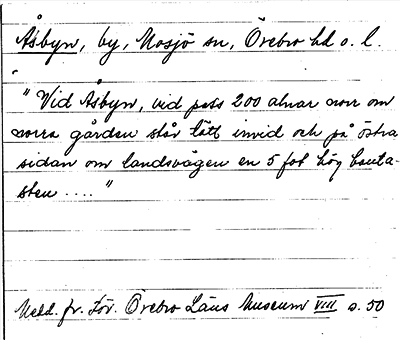 Åsbyn, by, Mosjö sn, Örebro hd o. l.
"Vid Åsbyn, vid pass 200 alnar norr om
norra gården står tätt invid och på östra
sidan om landsvägen en 5 fot hög bauta-
sten ...."
Medd. fr. För. Örebro Läns Museum VIII s. 50